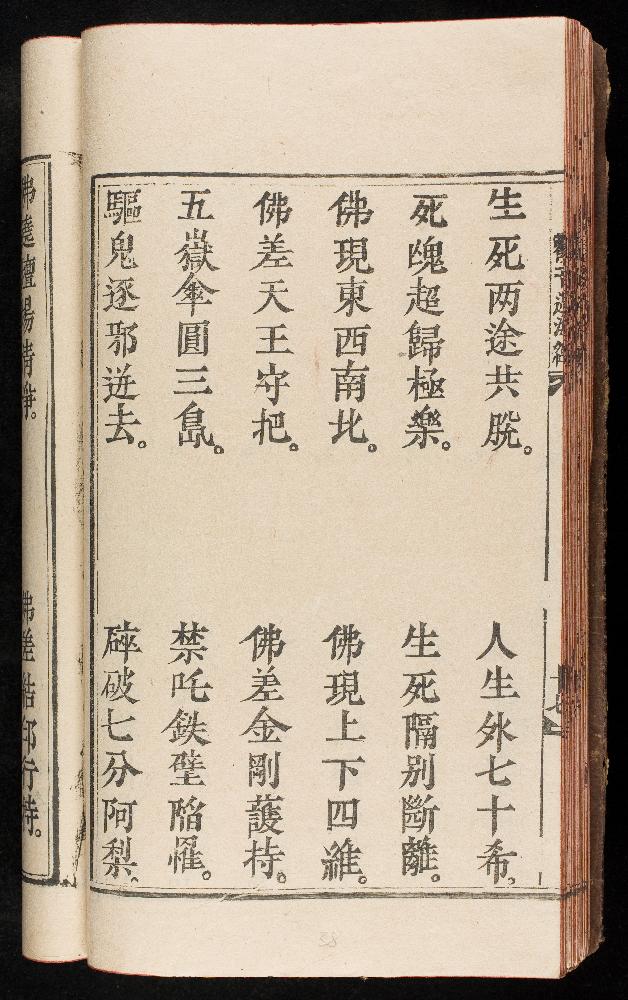 生死两途共脫。人生外七十希。
死魄超歸極樂。生死隔别斷離。
佛現東西南北。佛現上下四維。
佛差天王守把。佛差金剛護持。
五嶽傘圓三島。禁吒鉄壁陷罹。
驅鬼逐邪迸去。碎破七分阿梨。
38